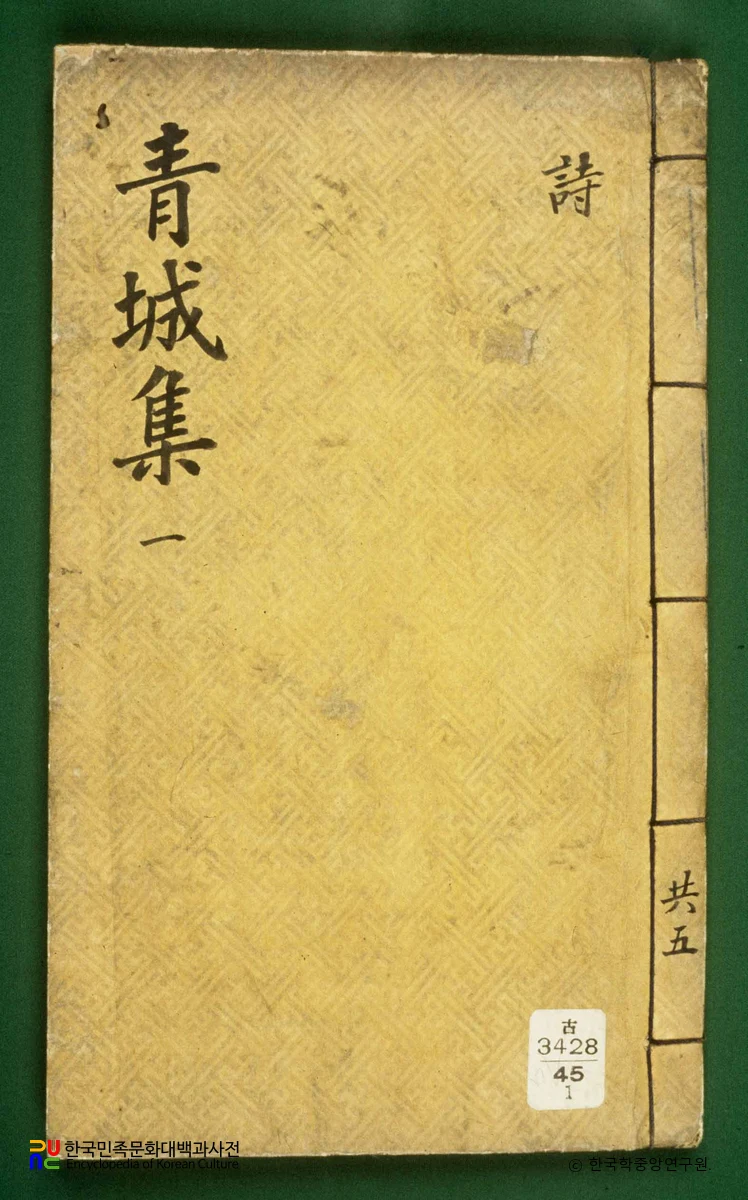 青城集 一
詩
共五
古
3428
45
1
한국민족문화대백과사전
Encyclopedia of Korean Culture
© 한국학중앙연구원